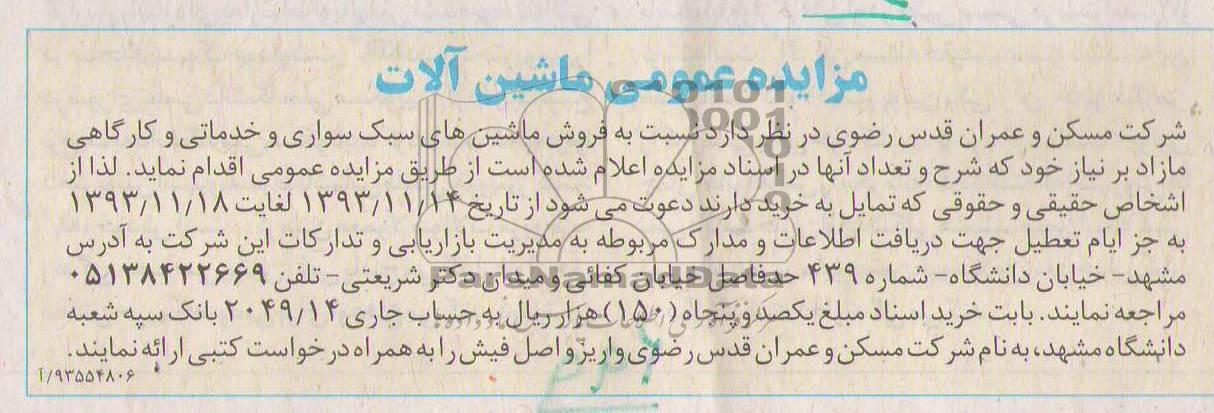 مزایده عمومی ماشین آلات
شرکت مسکن و عمران قدس رضوی در نظر دارد نسبت به فروش ماشین های سبک سواری و خدماتی و کارگاهی
مازاد بر نیاز خود که شرح و تعداد آنها در اسناد مزایده اعلام شده است از طریق مزایده عمومی اقدام نماید. لذا از
اشخاص حقیقی و حقوقی که تمایل به خرید دارند دعوت می شود از تاریخ ۱۳۹۳/۱۱/۱۴ لغایت ۱۳۹۳/۱۱/۱۸
به جز ایام تعطیل جهت دریافت اطلاعات و مدارک مربوطه به مدیریت بازاریابی و تدارکات این شرکت به آدرس
مشهد- خیابان دانشگاه- شماره ۴۳۹ حدفاصل خیابان کفائی و میدان دکتر شریعتی - تلفن ۰۵۱۳۸۴۲۲۶۶۹
مراجعه نمایند. بابت خرید اسناد مبلغ یکصد و پنجاه (۱۵۰) هزار ریال به حساب جاری ۲۰۴۹/۱۴ بانک سپه شعبه
دانشگاه مشهد، به نام شرکت مسکن و عمران قدس رضوی واریز و اصل فیش را به همراه درخواست کتبی ارائه نمایند.
۹۳۵۵۴۸۰۶/آ
ParsNamadData